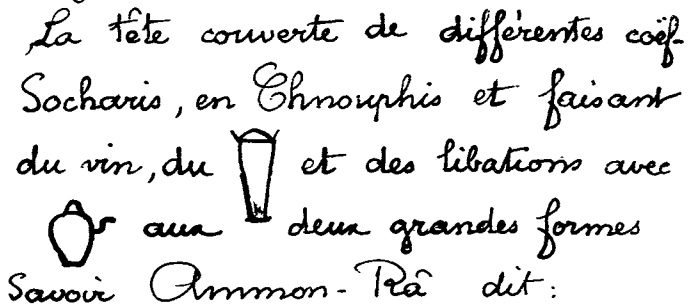 La tête couverte de différentes coëf-
Socharis, en Chnouphis et faisant
du vin, du et des libations avec
aux deux grandes formes
Savoir Ammon-Râ dit: